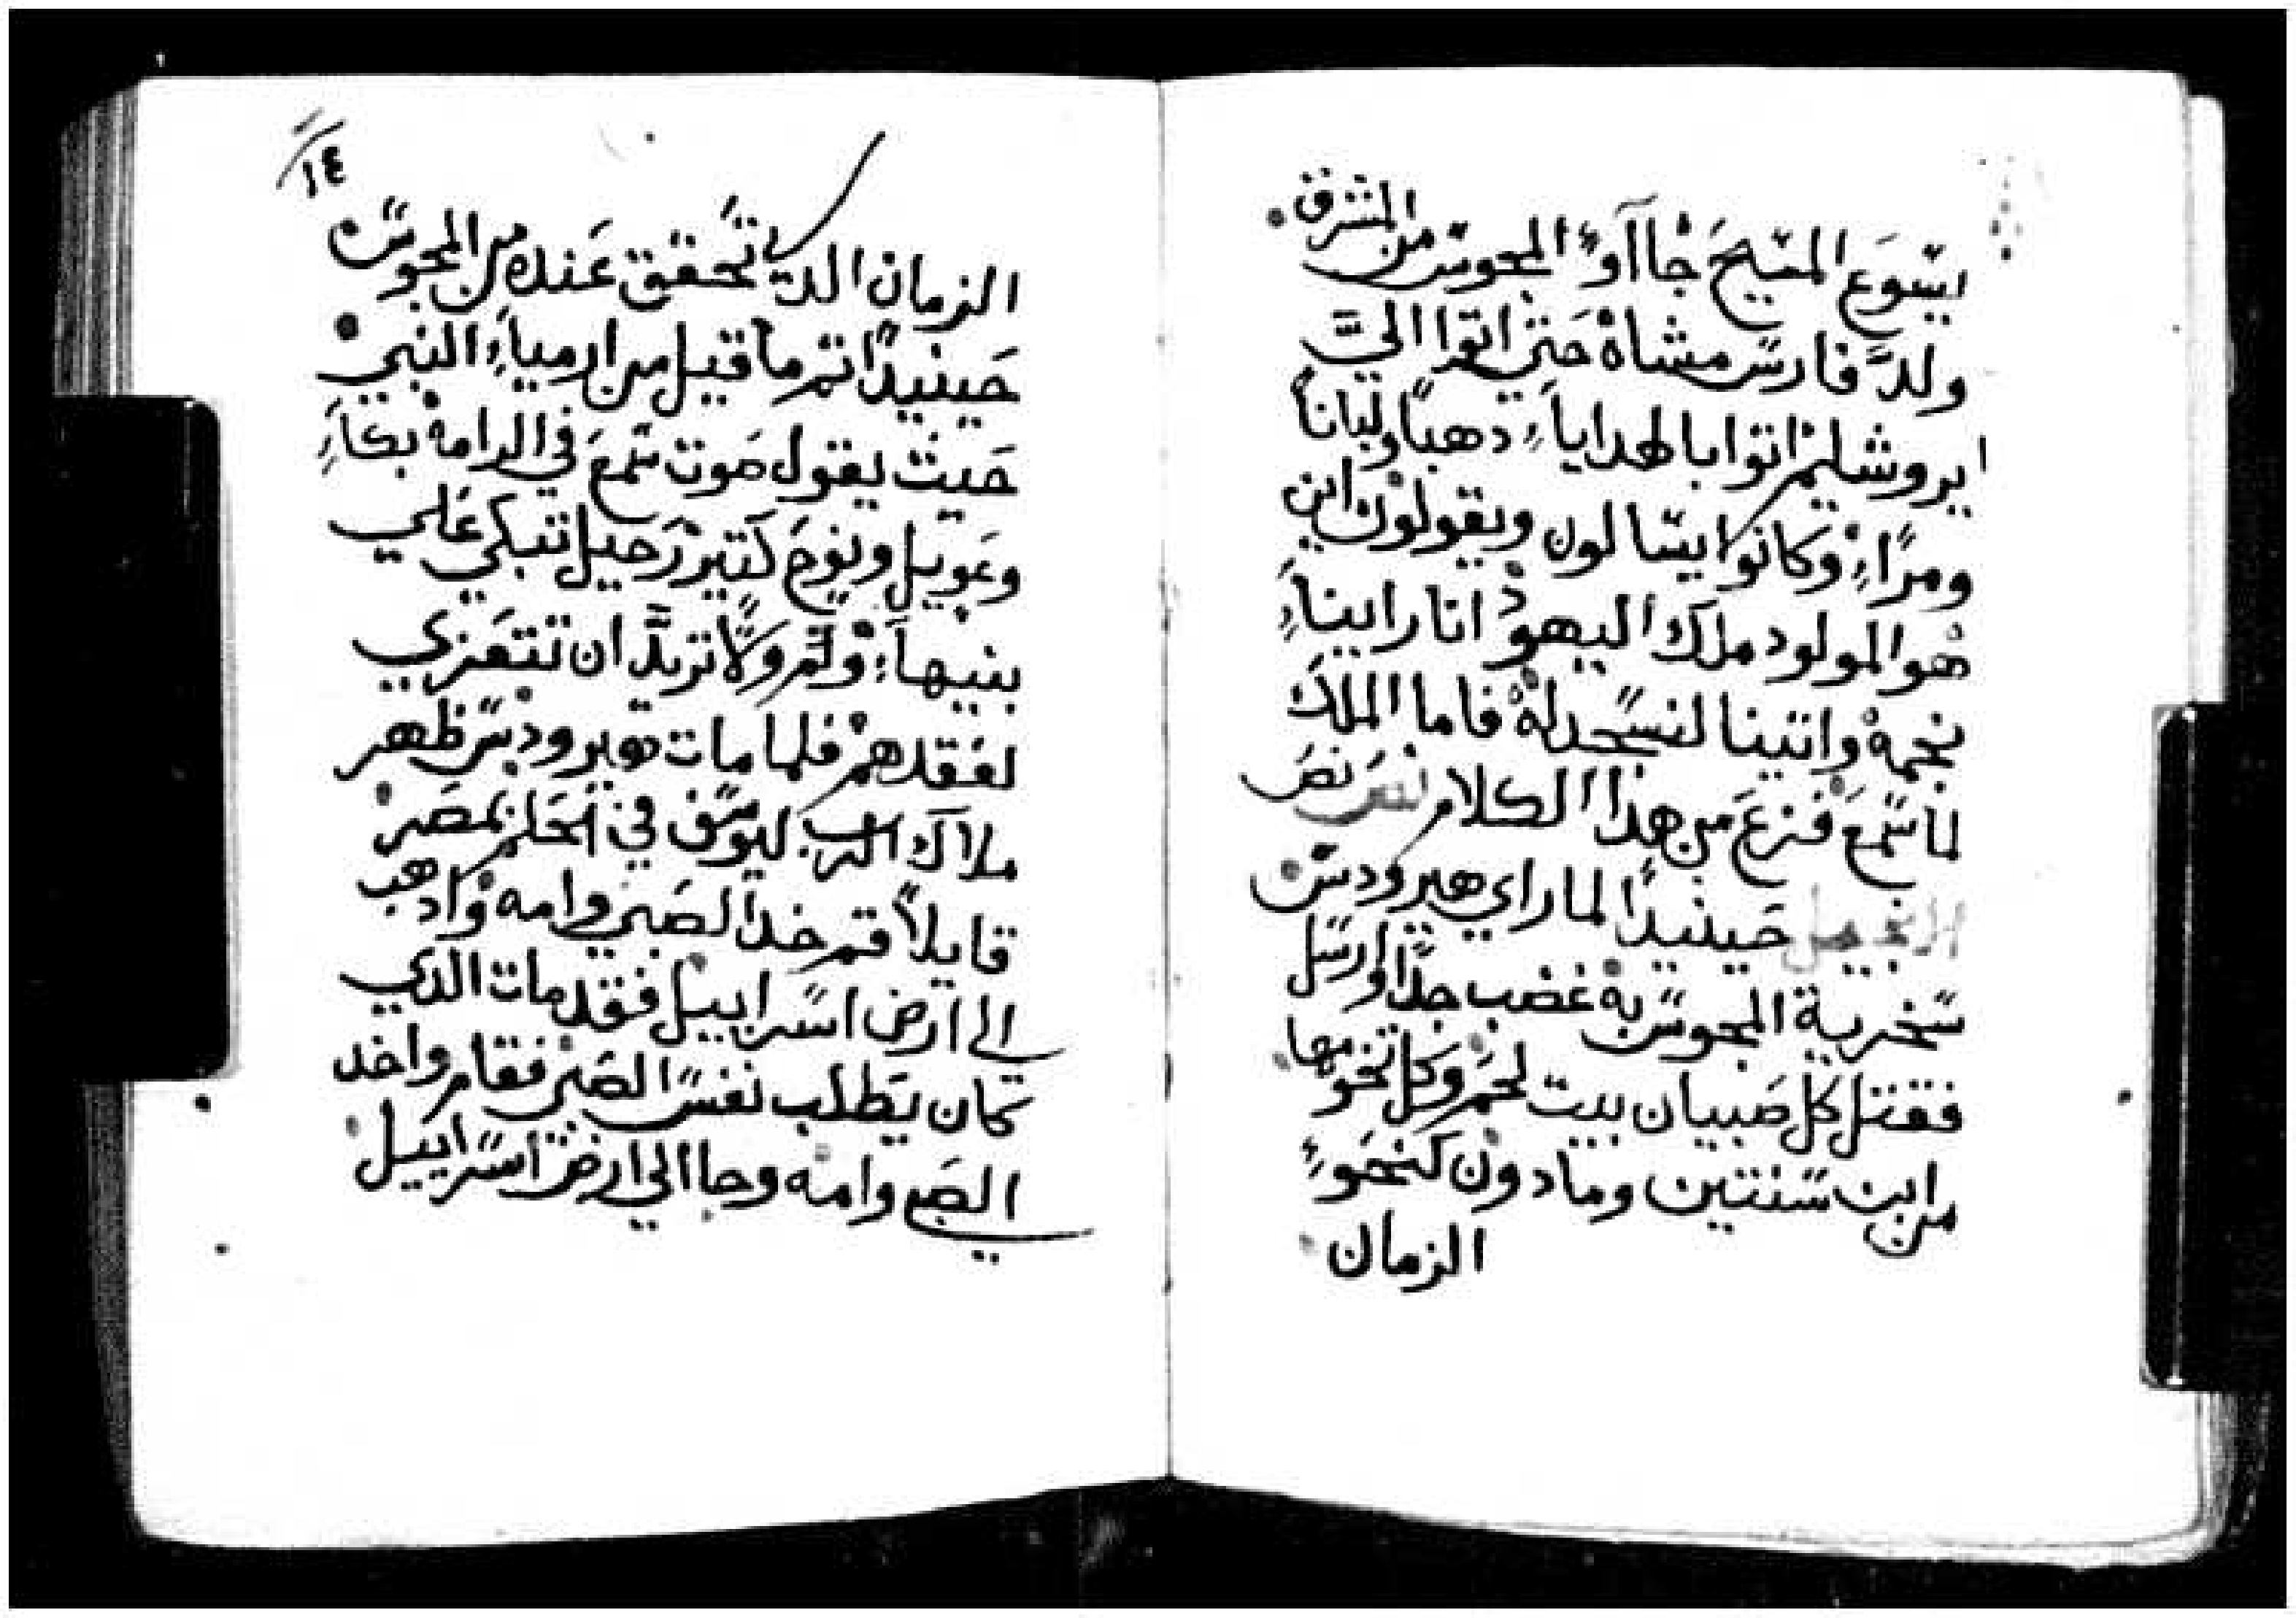 يسوع المسيح جاآوا المجوس من المشرق
ولد فارس مشاه حتى اتوا الى
ايروشليم اتوا بالهدايا دهبا ولبانا
ومرا وكانوا يسالون ويقولون اين
هو المولود ملك اليهود اننا راينا
نجمه واتينا لنسجد له فاما الملك
لما سمع فزع من هدا الكلام نص
الانجيل حينيدا لما راي هيرودس
سخرية المجوس به غضب جدا وارسل
فقتل كل صبيان بيت لحم وكل تخومها
من ابن سنتين وما دون كنحو
الزمان
١٤
الزمان الدي تحقق عنده من المجوس
حينيدا تم ما قيل من ارمياء النبي
حيث يقول صوت سمع في الرامه بكاء
وعويل ونوح كتير رحيل تبكي علي
بنيها ولم ولا تريد ان تتعزي
لفقدهم فلما مات هيرودس ظهر
ملاك الرب ليوسف في الحلم بمصر
قايلا قم خد الصبي وامه وادهب
الي ارض اسراييل فقد مات الدي
كان يطلب نفس الصبي فقام واخد
الصبي وامه وجا الي ارض اسراييل